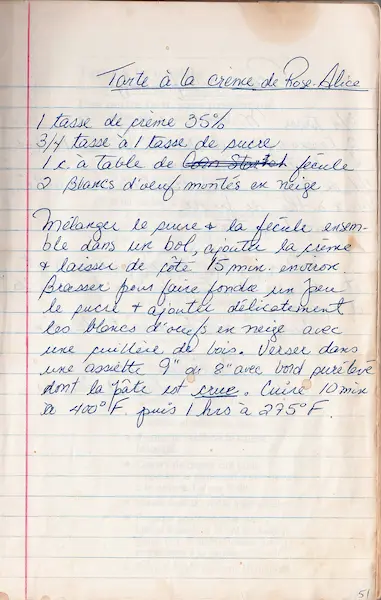 Tarte à la crème de Rose-Alice
1 tasse de crème 35%
3/4 tasse à 1 tasse de sucre
1 c. à table de Corn Starch fécule
2 Blancs d'oeuf montés en neige
Mélanger le sucre + la fécule ensem-
ble dans un bol, ajouter la crème
+ laisser de côté 15 min. environ.
Brasser pour faire fondre un peu
le sucre + ajouter délicatement
les blancs d'oeufs en neige avec
une cuillère de bois. Verser dans
une assiette 9" ou 8" avec bord
dont la pâte est crue. Cuire 10 min
à 400°F puis 1 hrs à 275°F.
51